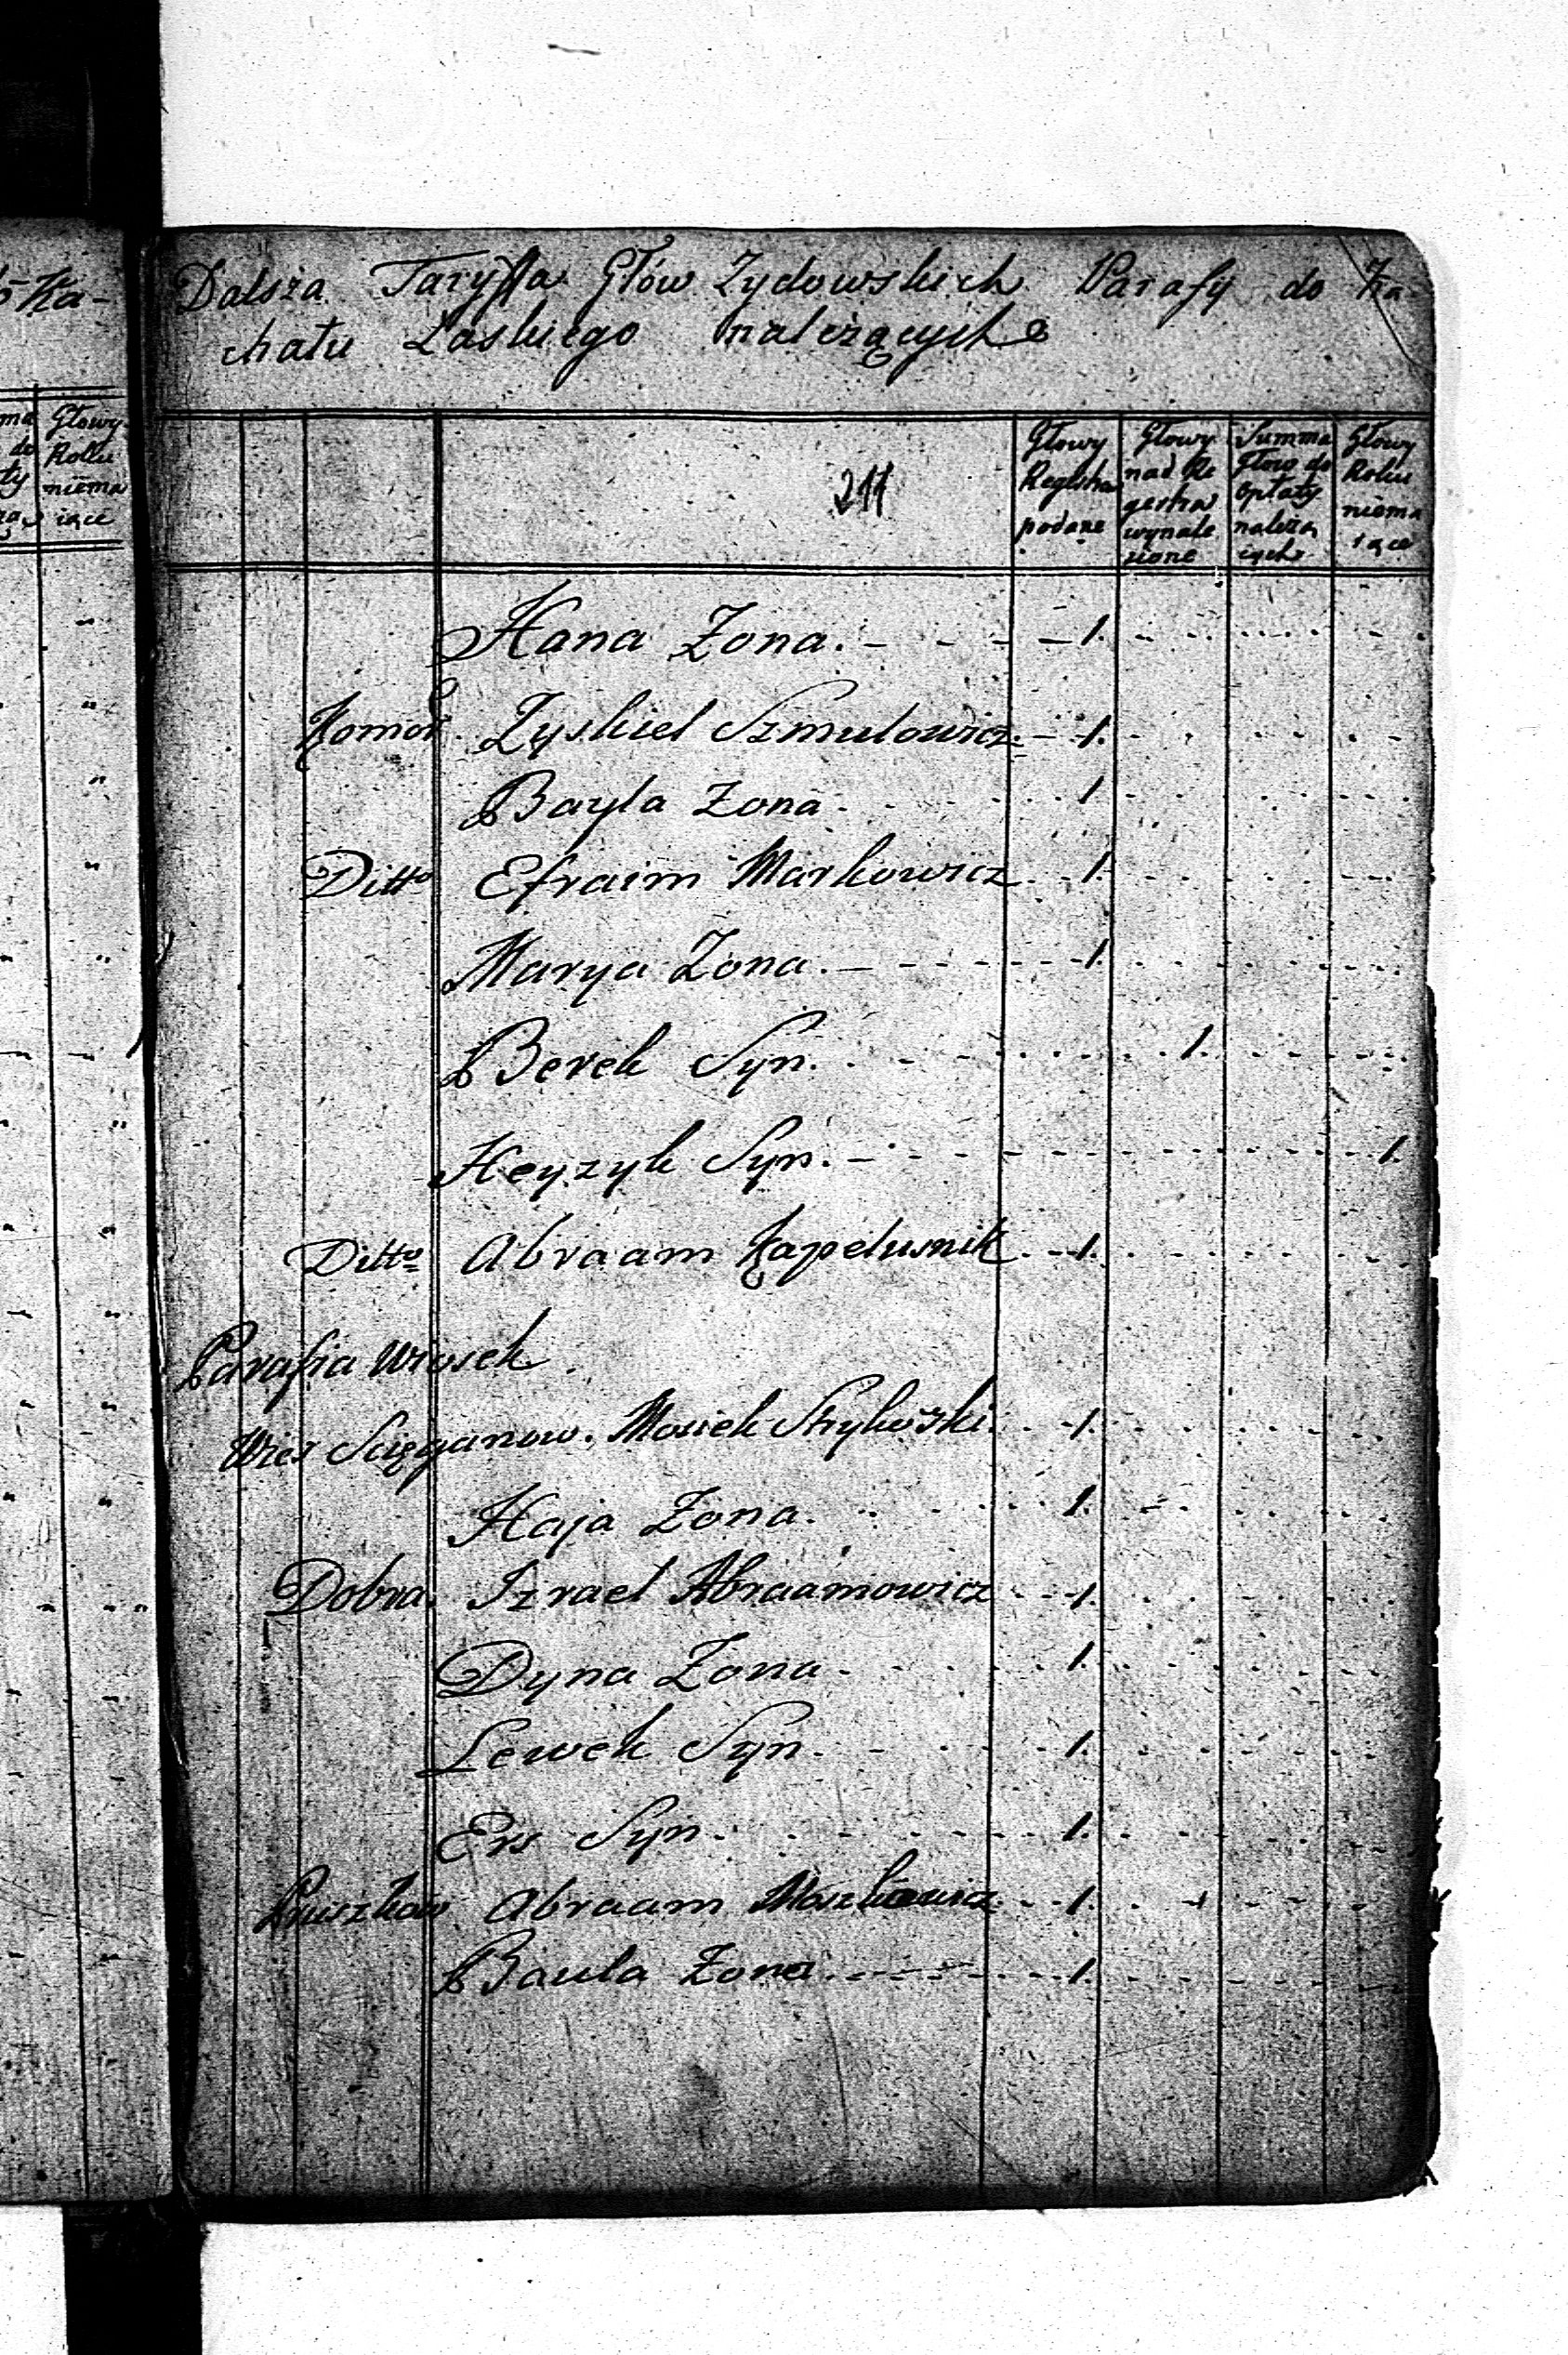 Dalsza Taryffa Głów Zydowskich Parafy do Ka-
chału Laskiego nalezących
211
Głowy Regestra podane
Głowy nad Re gestra wynale zione
Summa Głow do opłaty nalezą cych
Głowy Roku niema iące
Hana Zona. 1.
Komor. Zyskiel Szmulowicz 1.
Bayla Zona 1
Ditto Efraim Markowicz 1
Marya Zona. 1.
Berek Syn. 1.
Heyzyk Syn. 1.
Ditto Abraam Kapelusnik 1.
Parafia Wiosek
Wies Scięganow. Mosiek Strykoski. 1.
Haja Zona. 1.
Dobra. Izrael Abraamowicz 1.
Dyna Zona 1.
Lewek Syn. 1.
Ers Syn. 1.
Abraam Moszkowicz 1.
Baula Zona. 1.
Głowy Roku niema iące